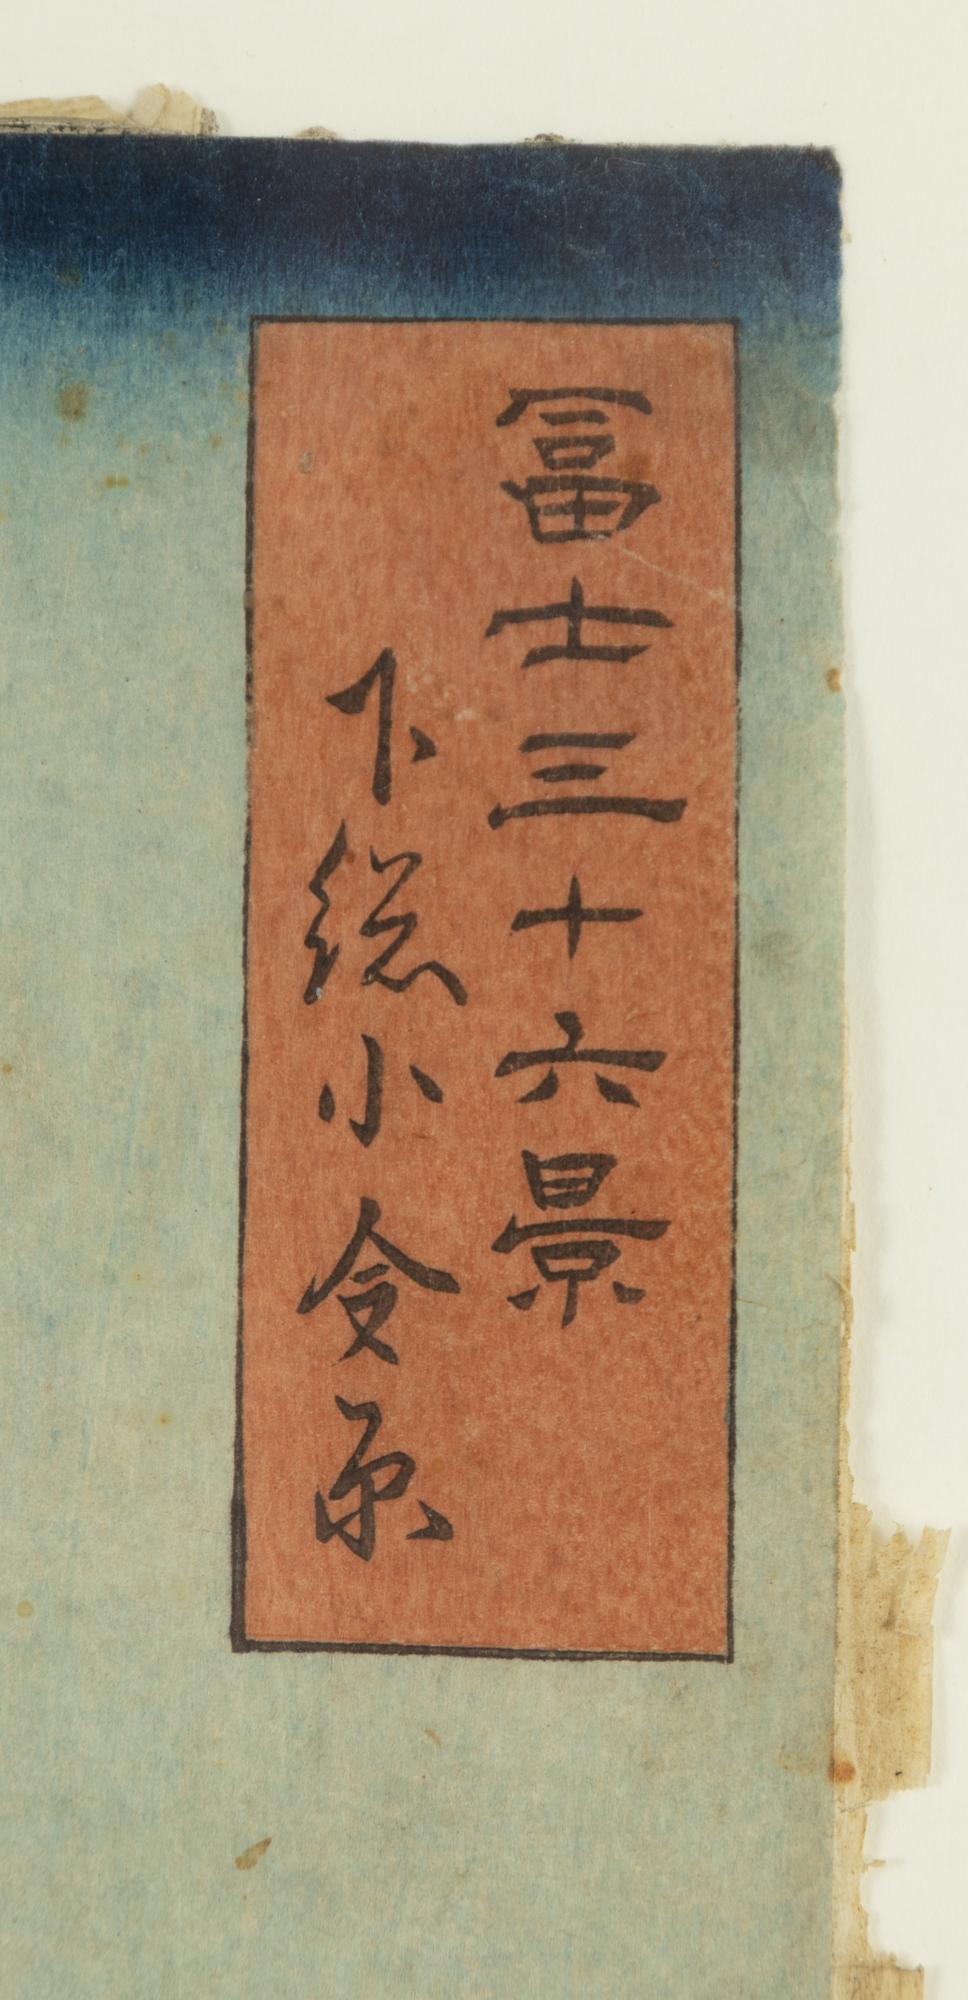 冨士三十六景
下総小金原